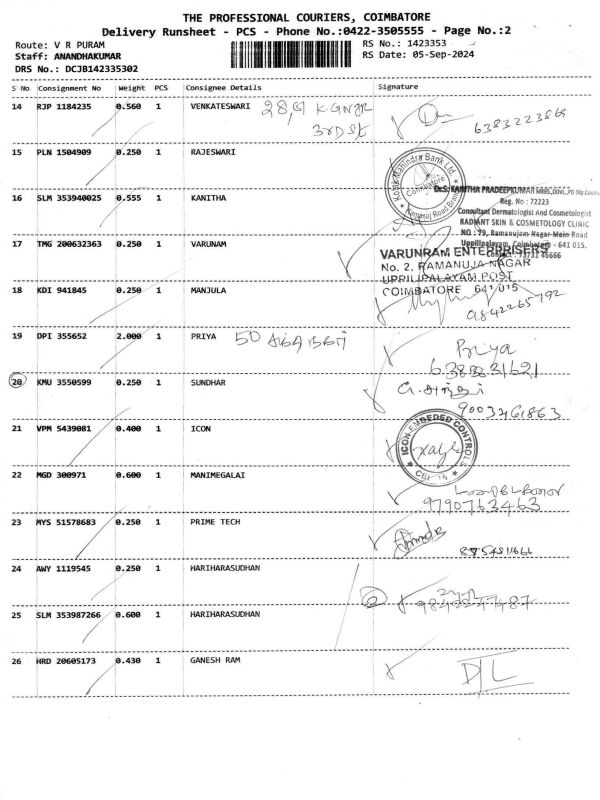 THE PROFESSIONAL COURIERS, COIMBATORE
Delivery Runsheet - PCS - Phone No.:0422-3505555 - Page No.:2
Route: V R PURAM
Staff: ANANDHAKUMAR
DRS No.: DCJB142335302
RS No.: 1423353
RS Date: 05-Sep-2024
S No Consignment No Weight PCS Consignee Details Signature
14 RJP 1184235 0.560 1 VENKATESWARI
6383223869
15 PLN 1504909 0.250 1 RAJESWARI
Kotak Mahindra Bank Ltd.
Coimbatore
16 SLM 353940025 0.555 1 KANITHA
Dr.S. KANITHA PRADEEPKUMAR
Reg. No : 72223
Consultant Dermatologist And Cosmetologist
RADIANT SKIN & COSMETOLOGY CLINIC
NO : 79, Ramanujam Nagar Main Road
Uppilipalayam, Coimbatore - 641 015.
17 TMG 200632363 0.250 1 VARUNAM
VARUNRAM ENTERPRISERS
No. 2, RAMANUJA NAGAR
UPPILIPALAYAM POST
COIMBATORE 641 015
18 KDI 941845 0.250 1 MANJULA
9842265792
19 DPI 355652 2.000 1 PRIYA
Priya
20 KMU 3550599 0.250 1 SUNDHAR
9003461863
21 VPM 5439081 0.400 1 ICON
ICON EMBEDED CONTROLS
22 MGD 300971 0.600 1 MANIMEGALAI
9790763463
23 MYS 51578683 0.250 1 PRIME TECH
24 AWY 1119545 0.250 1 HARIHARASUDHAN
25 SLM 353987266 0.600 1 HARIHARASUDHAN
26 HRD 20605173 0.430 1 GANESH RAM
D/L